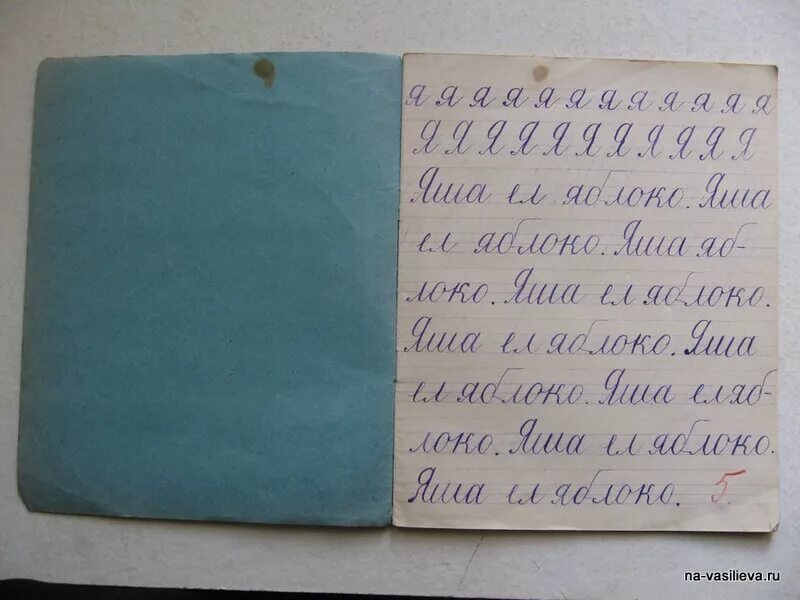 я я я я я я я я я я я я
Я Я Я Я Я Я Я Я Я Я Я
Яша ел яблоко. Яша
ел яблоко. Яша яб-
локо. Яша ел яблоко.
Яша ел яблоко. Яша
ел яблоко. Яша ел яб-
локо. Яша ел яблоко.
Яша ел яблоко. 5
na-vasilieva.ru